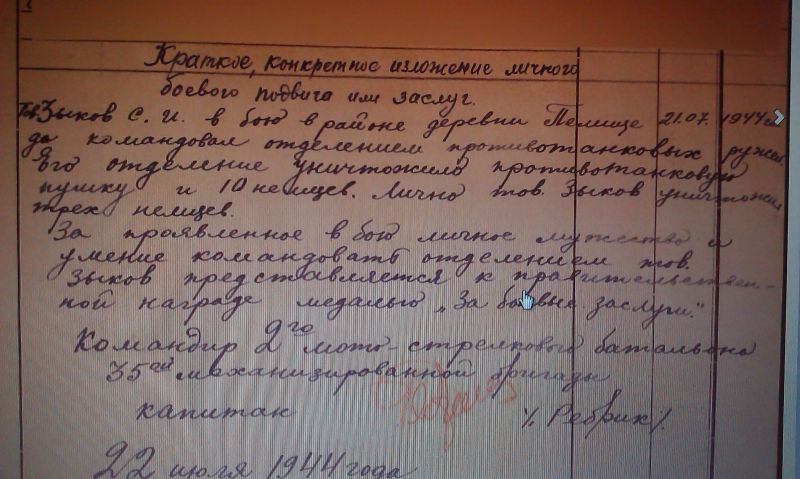 Краткое, конкретное изложение личного
боевого подвига или заслуг.
Тов. Зыков С. И. в бою в районе деревни Пелище 21.07. 1944 го-
да командовал отделением противотанковых ружей.
Его отделение уничтожило противотанковую
пушку и 10 немцев. Лично тов. Зыков уничтожил
трех немцев.
За проявленное в бою личное мужество и
умение командовать отделением тов.
Зыков представляется к правительствен-
ной награде медалью „За боевые заслуги."
Командир 2го мото-стрелкового батальона
35ой механизированной бригады
капитан /Ребрик/.
22 июля 1944 года